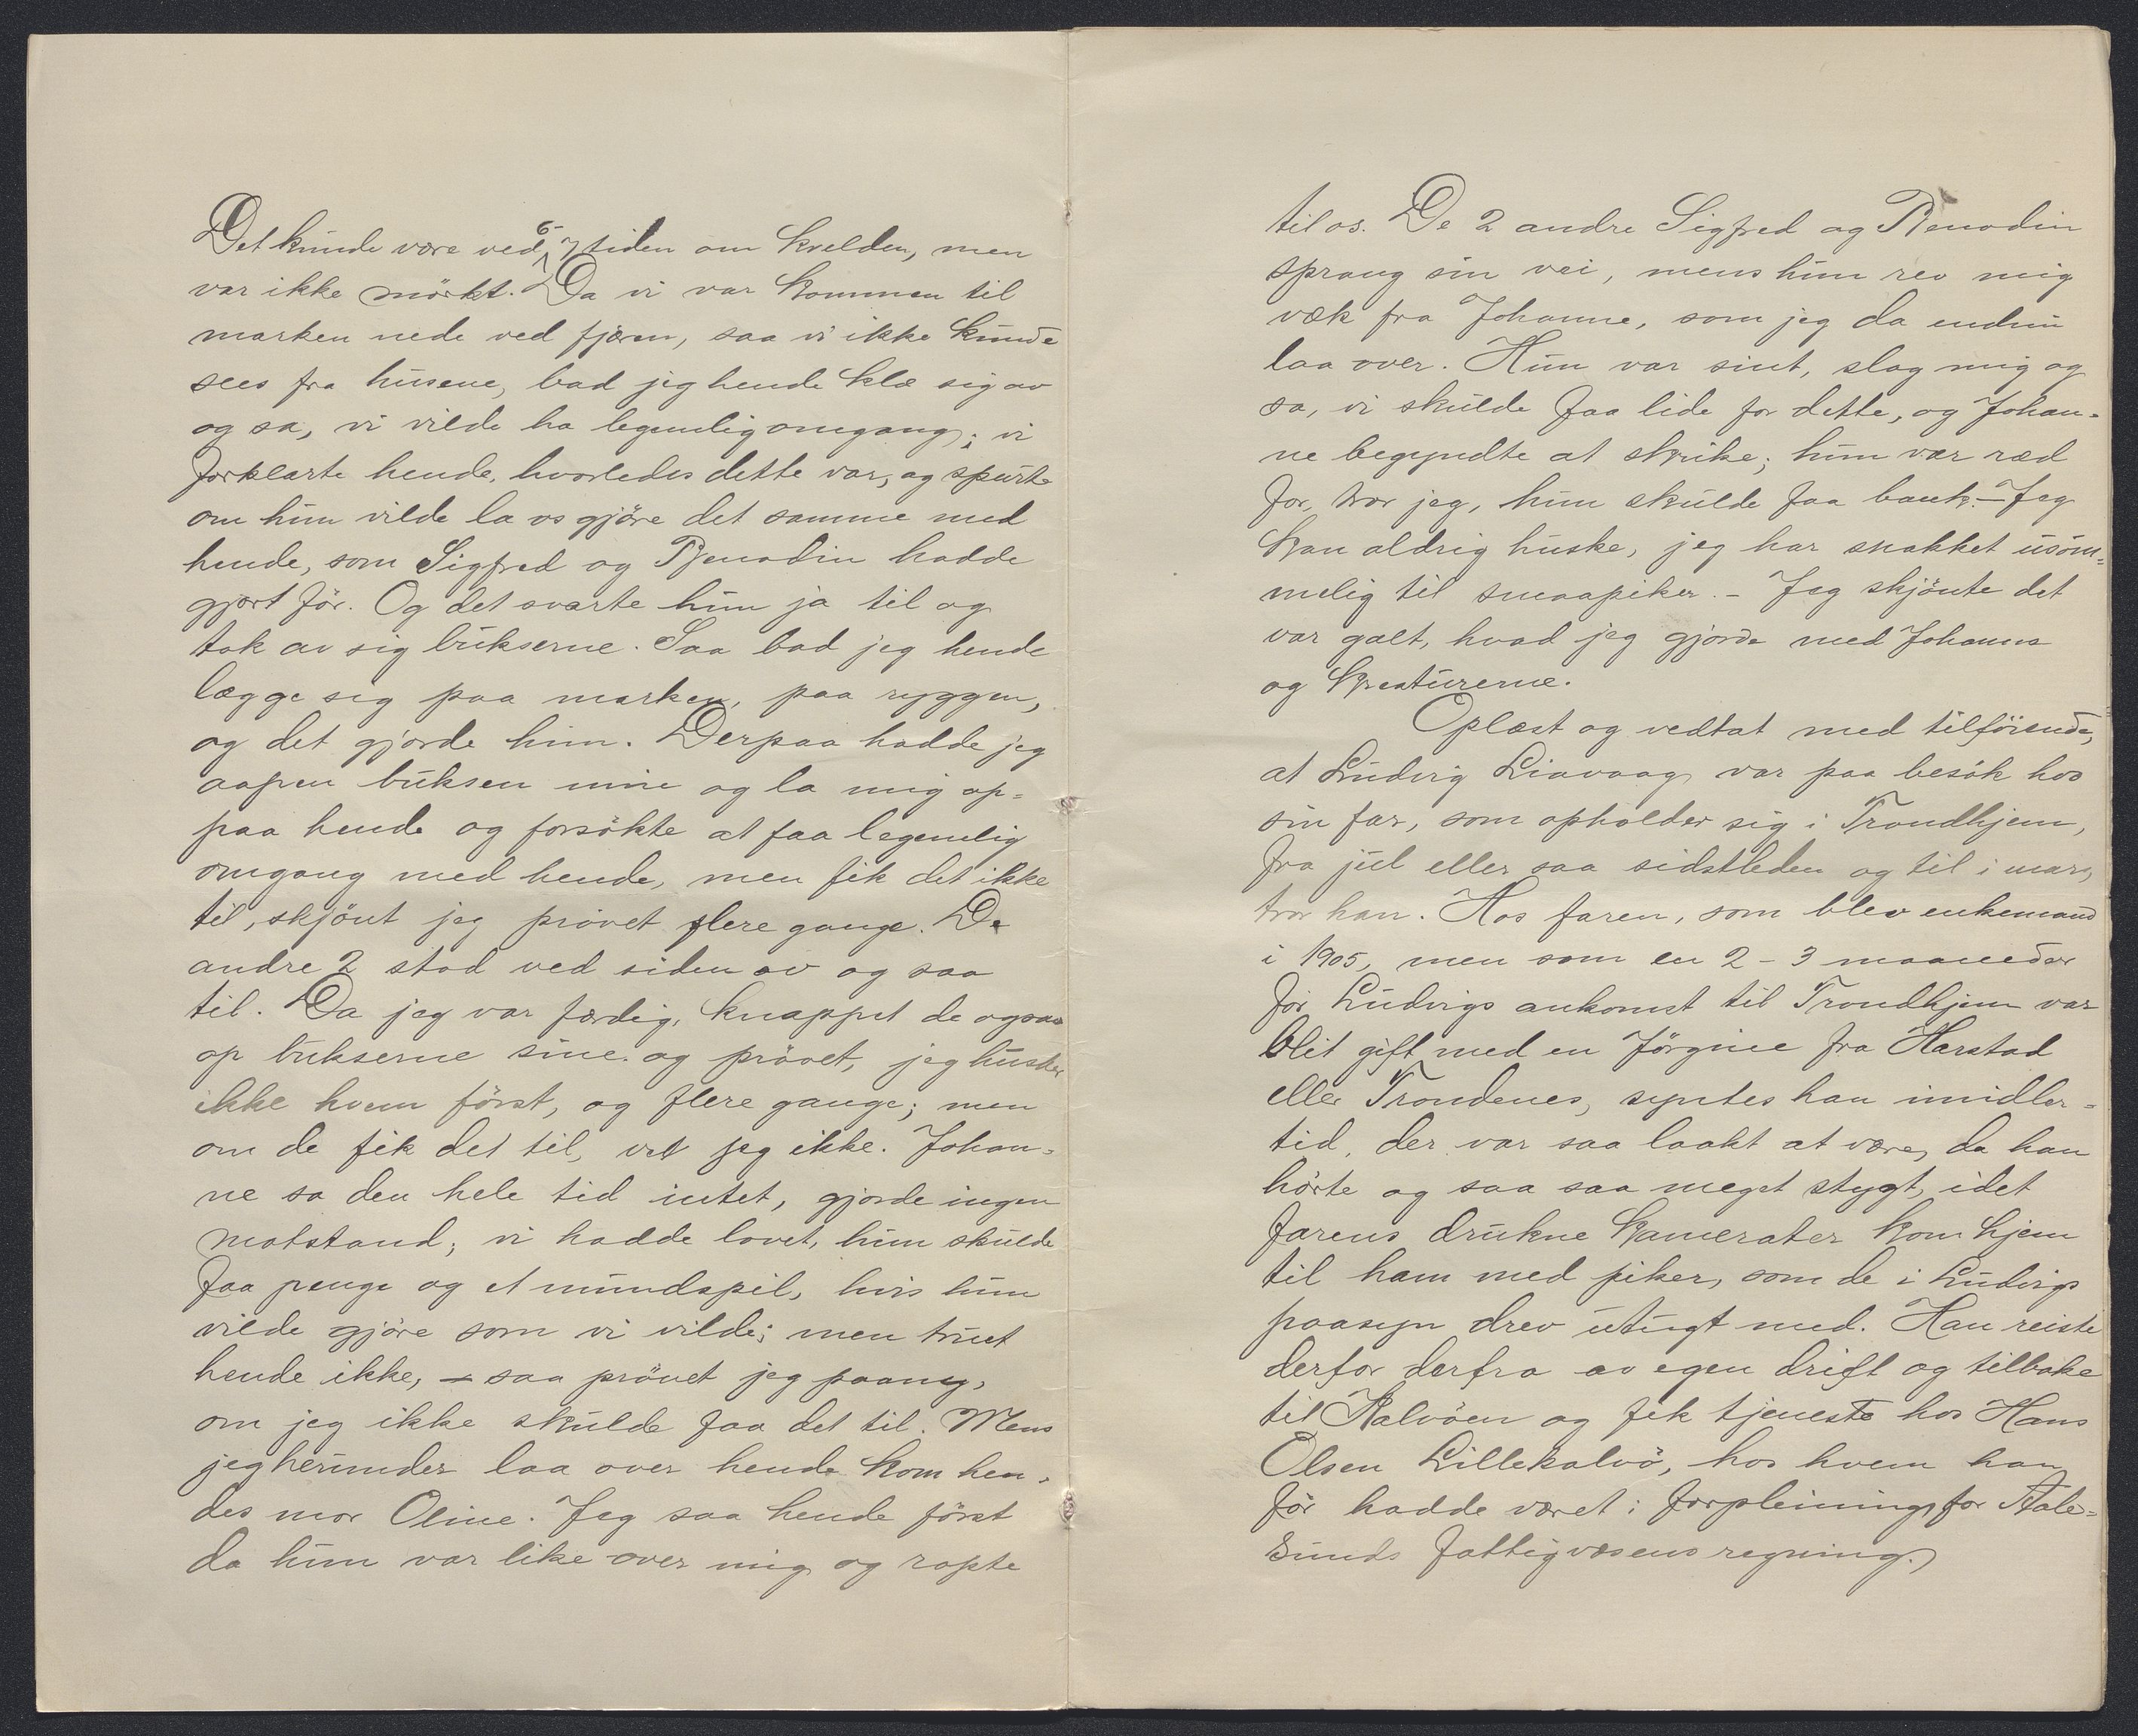 Det kunde være ved 6-7 tiden om kvelden, men
var ikke mörkt. Da vi var kommen til
marken nede ved fjæren, saa vi ikke kunde
sees fra husene, bad jeg hende klæ sig av
og sa, vi vilde ha legemlig omgang; vi
forklarte hende, hvorledes dette var, og spurte
om hun vilde la os gjöre det samme med
hende, som Sigfred og Penodin hadde
gjort för. Og det svarte hun ja til og
tok av sig bukserne. Saa bad jeg hende
lægge sig paa marken, paa ryggen,
og det gjorde hun. Derpaa hadde jeg
aapen buksen min og la mig op=
paa hende og forsökte at faa legemlig
omgang med hende, men fik det ikke
til, skjönt jeg prövet flere gange. De
andre 2 stod ved siden av og saa
til. Da jeg var færdig, knappet de ogsaa
op bukserne sine og prövet, jeg husker
ikke hvem först, og flere gange; men
om de fik det til, vet jeg ikke. Johan=
ne sa den hele tid intet, gjorde ingen
motstand; vi hadde lovet, hun skulde
faa penge og et mundspil, hvis hun
vilde gjöre som vi vilde; men truet
hende ikke, – saa prövet jeg paany,
om jeg ikke skulde faa det til. Mens
jeg herunder laa over hende kom hen=
des mor Oline. Jeg saa hende först
da hun var like over mig og ropte
til os. De 2 andre Sigfred og Penodin
sprang sin vei, mens hun rev mig
væk fra Johanne, som jeg da endnu
laa over. Hun var sint, slog mig og
sa, vi skulde faa lide for dette, og Johan=
ne begyndte at skrike; hun var ræd
for, tror jeg, hun skulde faa bank. – Jeg
kan aldrig huske, jeg har snakket usöm=
melig til smaapiker. – Jeg skjönte det
var galt, hvad jeg gjorde med Johanne
og kreaturerne.
Oplæst og vedtat med tilföiende,
at Ludvig Liavaag var paa besök hos
sin far, som opholder sig i Trondhjem,
fra jul eller saa sidstleden og til i mars,
tror han. Hos faren, som blev enkemand
i 1905, men som en 2 – 3 maaneder
för Ludvigs ankomst til Trondhjem var
blit gift med en Jörgine fra Harstad
eller Trondenes, syntes han imidler=
tid, der var saa laakt at være, da han
hörte og saa saa meget stygt, idet
farens drukne kamerater kom hjem
til ham med piker, som de i Ludvigs
paasyn drev utugt med. Han reiste
derfor derfra av egen drift og tilbake
til Kalvöen og fik tjeneste hos Hans
Olsen Lillekalvö, hos hvem han
för hadde været i forpleining for Aale=
sunds fattigvæsens regning.